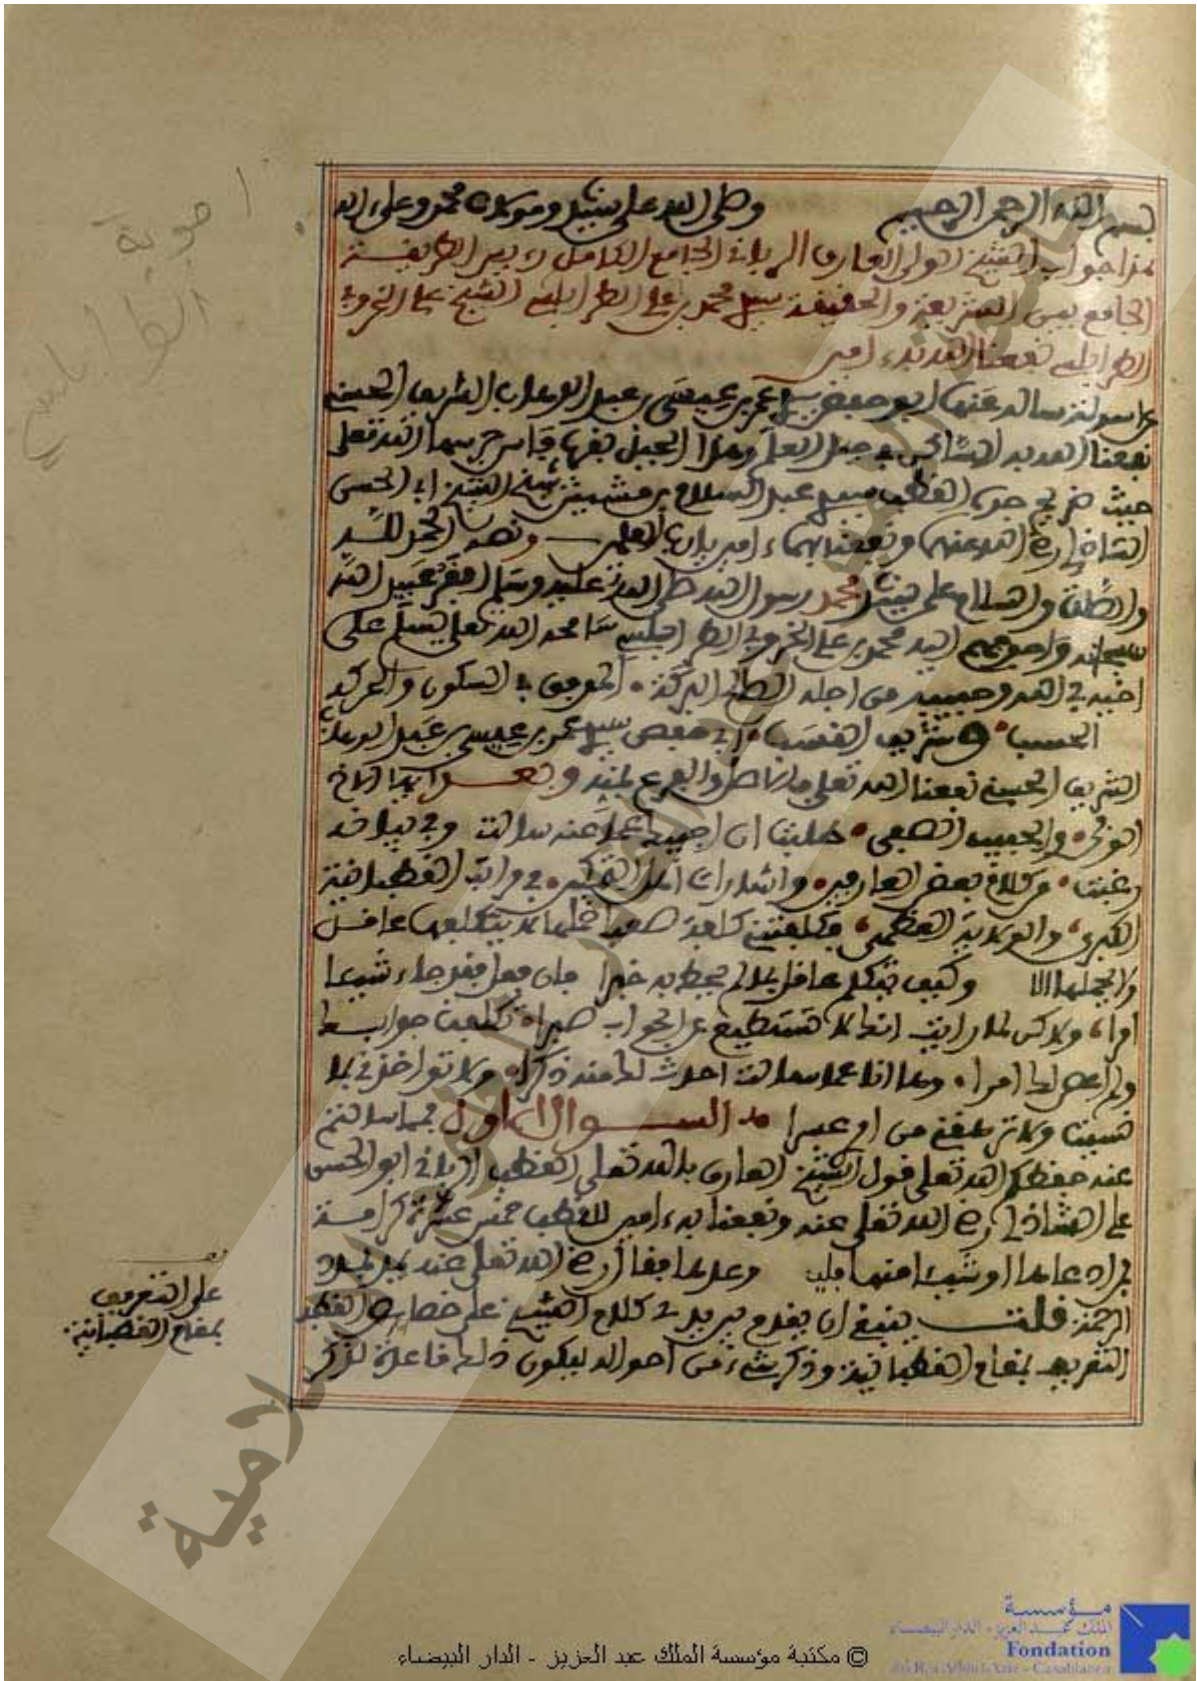 بسم الله الرحمن الرحيم وصلى الله على سيدنا ومولانا محمد وعلى اله
هذا جواب الشيخ الولي العارف الرباني الجامع الكامل الطريقة
الجامع بين الشريعة والحقيقة سيدي محمد بن علي الطرابلسي الشيخ علي الخروبي
الطرابلسي نفعنا الله به ءامين
عن اسولة ساله عنها ابو حفص سيدي عمر بن عيسى بن عبد الوهاب الشريف الحسني
نفعنا الله به الساكن في جبل العلم وهذا الجبل
حيث ضريح القطب سيدي عبد السلام بن مشيش شيخ الشيخ ابي الحسن
الشاذلي رضي الله عنهما ونفعنا بهما ءامين ونصه الحمد لله
والصلاة والسلام على سيدنا محمد رسول الله صلى الله عليه وسلم افقر عبيد الله
سبحانه واحوجهم اليه محمد بن علي الخروبي الطرابلسي سامحه الله تعلى يسلم على
اخيه في الله وحبيبه من اجله الصالح البركة الموفق في السكون والحركة
الحسيب شريف النسب ابي حفص سيدي عمر بن عيسى بن عبد الوهاب
الشريف الحسني نفعنا الله تعلى بالاصل والفرع منه وبعد ايها الاخ
الوفي والحبيب الصفي طلبت ان اجيبك عما عنه سالت وفي بيانه
رغبت من كلام بعض العارفين واشارات اهل التمكين في مراتب القطبانية
الكبرى والغوثية العظمى فكلفتني كلفة صعبا حملها لا يتكلفها عاقل
ولا يحملها الا وكيف يتكلم عاقل بما لم يحط به خبرا فان فعل فقد جاء شيئا
امرا ولاكن لما رايت انك لا تستطيع عن الجواب صبرا تكلفت جوابك
ولم اعص لك امرا وها انا عما سالت احدث لك منه ذكرا ولا تواخذني بما
نسيت ولا ترهقني من امري عسرا السؤال الاول مما سالتم
عنه حفظكم الله تعلى قول الشيخ العارف بالله تعلى القطب الرباني ابو الحسن
علي الشاذلي رضي الله تعلى عنه ونفعنا به ءامين للقطب خمس عشرة كرامة
فمن ادعاها او شيئا منها فليبرز وعدها فقال رضي الله تعلى عنه يمد بمدد
الرحمة قلت ينبغي ان يقدم بين يدي كلام الشيخ على خصائص القطب
التعريف بمقام القطبانية وذكر شيء من احواله ليكون ذلك قاعدة لذكر
على التعريف
بمقام القطبانية
اجوبة
الطرابلسي
© مكتبة مؤسسة الملك عبد العزيز - الدار البيضاء
مؤسسة
الملك عبد العزيز - الدار البيضاء
Fondation
du Roi Abdul-Aziz - Casablanca